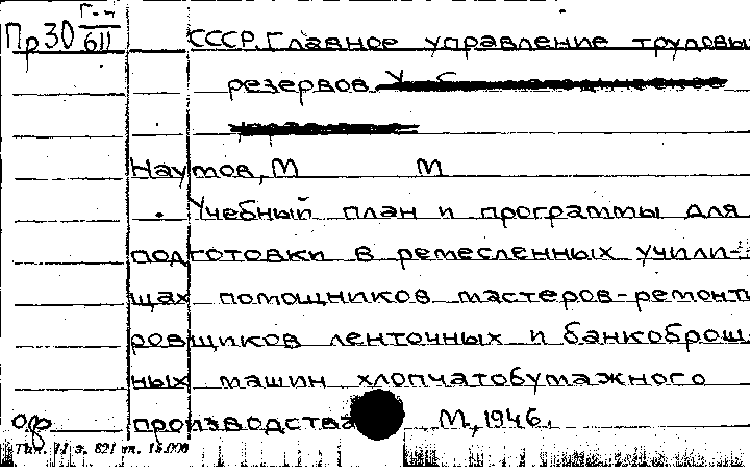 Пр30 Г-4/611
СССР. Главное управление трудовы
резервов.
Наумов, М М
Учебный план и программы для
подготовки в ремесленных учили-
щах помощников мастеров-ремонти
ровщиков ленточных и банкоброш-
ных машин хлопчатобумажного
производства М., 1946.
Тип. зак. 821 т. 15.000